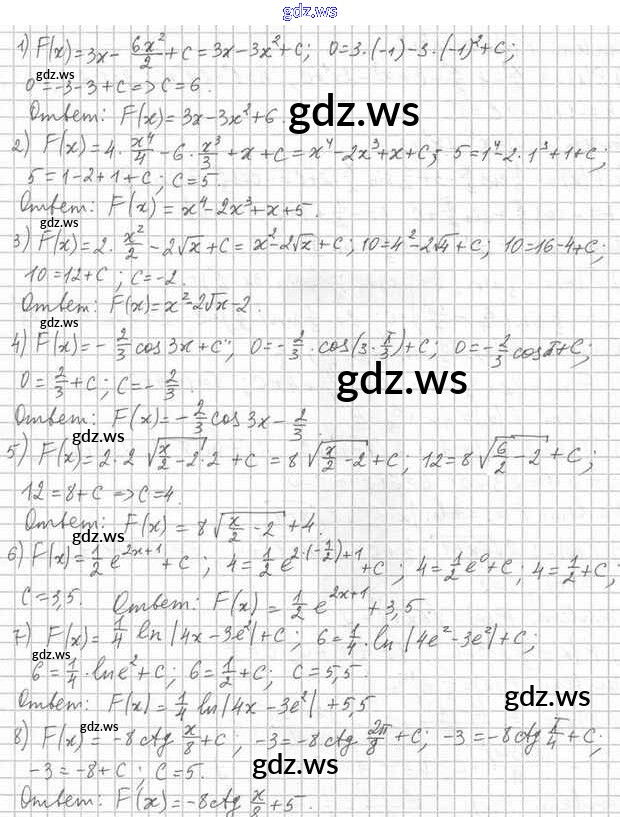 gdz.ws
1) F(x)=3x- 6x²/2 +C=3x-3x²+C; 0=3·(-1)-3·(-1)²+C;
gdz.ws
0=-3-3+C=>C=6.
Ответ: F(x)=3x-3x²+6.
gdz.ws
2) F(x)=4·x⁴/4-6·x³/3+x+C=x⁴-2x³+x+C; 5=1⁴-2·1³+1+C;
5=1-2+1+C; C=5.
Ответ: F(x)=x⁴-2x³+x+5.
gdz.ws
3) F(x)=2·x²/2-2√x+C=x²-2√x+C; 10=4²-2√4+C; 10=16-4+C;
10=12+C; C=-2.
Ответ: F(x)=x²-2√x-2.
gdz.ws
4) F(x)=-2/3 cos3x+C; 0=-2/3·cos(3·π/3)+C; 0=-2/3 cosπ+C;
0=2/3+C; C=-2/3.
gdz.ws
Ответ: F(x)=-2/3 cos3x-2/3.
gdz.ws
5) F(x)=2·2√(x/2-2)·2+C=8√(x/2-2)+C; 12=8√(6/2-2)+C;
12=8+C=>C=4.
Ответ: F(x)=8√(x/2-2)+4.
gdz.ws
6) F(x)=1/2 e^(2x+1)+C; 4=1/2 e^(2·(-1/2)+1)+C; 4=1/2 e⁰+C; 4=1/2+C;
C=3,5. Ответ: F(x)=1/2 e^(2x+1)+3,5.
gdz.ws
7) F(x)=1/4 ln|4x-3e²|+C; 6=1/4·ln|4e²-3e²|+C;
gdz.ws
6=1/4·lne²+C; 6=1/2+C; C=5,5.
Ответ: F(x)=1/4 ln|4x-3e²|+5,5
gdz.ws
gdz.ws
8) F(x)=-8ctg x/8+C; -3=-8ctg 2π/8+C; -3=-8ctg π/4+C;
-3=-8+C; C=5.
gdz.ws
Ответ: F(x)=-8ctg x/8+5.
gdz.ws